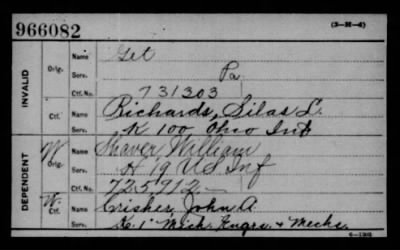 966082
(3-H-4)
INVALID
Orig.
Name
Serv. Pa
Ctf. No. 731303
Ctf.
Name Richards, Silas L.
Serv. K 100, Ohio Inf
DEPENDENT
W. Orig.
Name Shaver William
Serv. H 19 US Inf
Ctf. No. 725912
W. Ctf.
Name Crisher, John A.
Serv. Co. 1" Mech. Engrs. & Mechs.